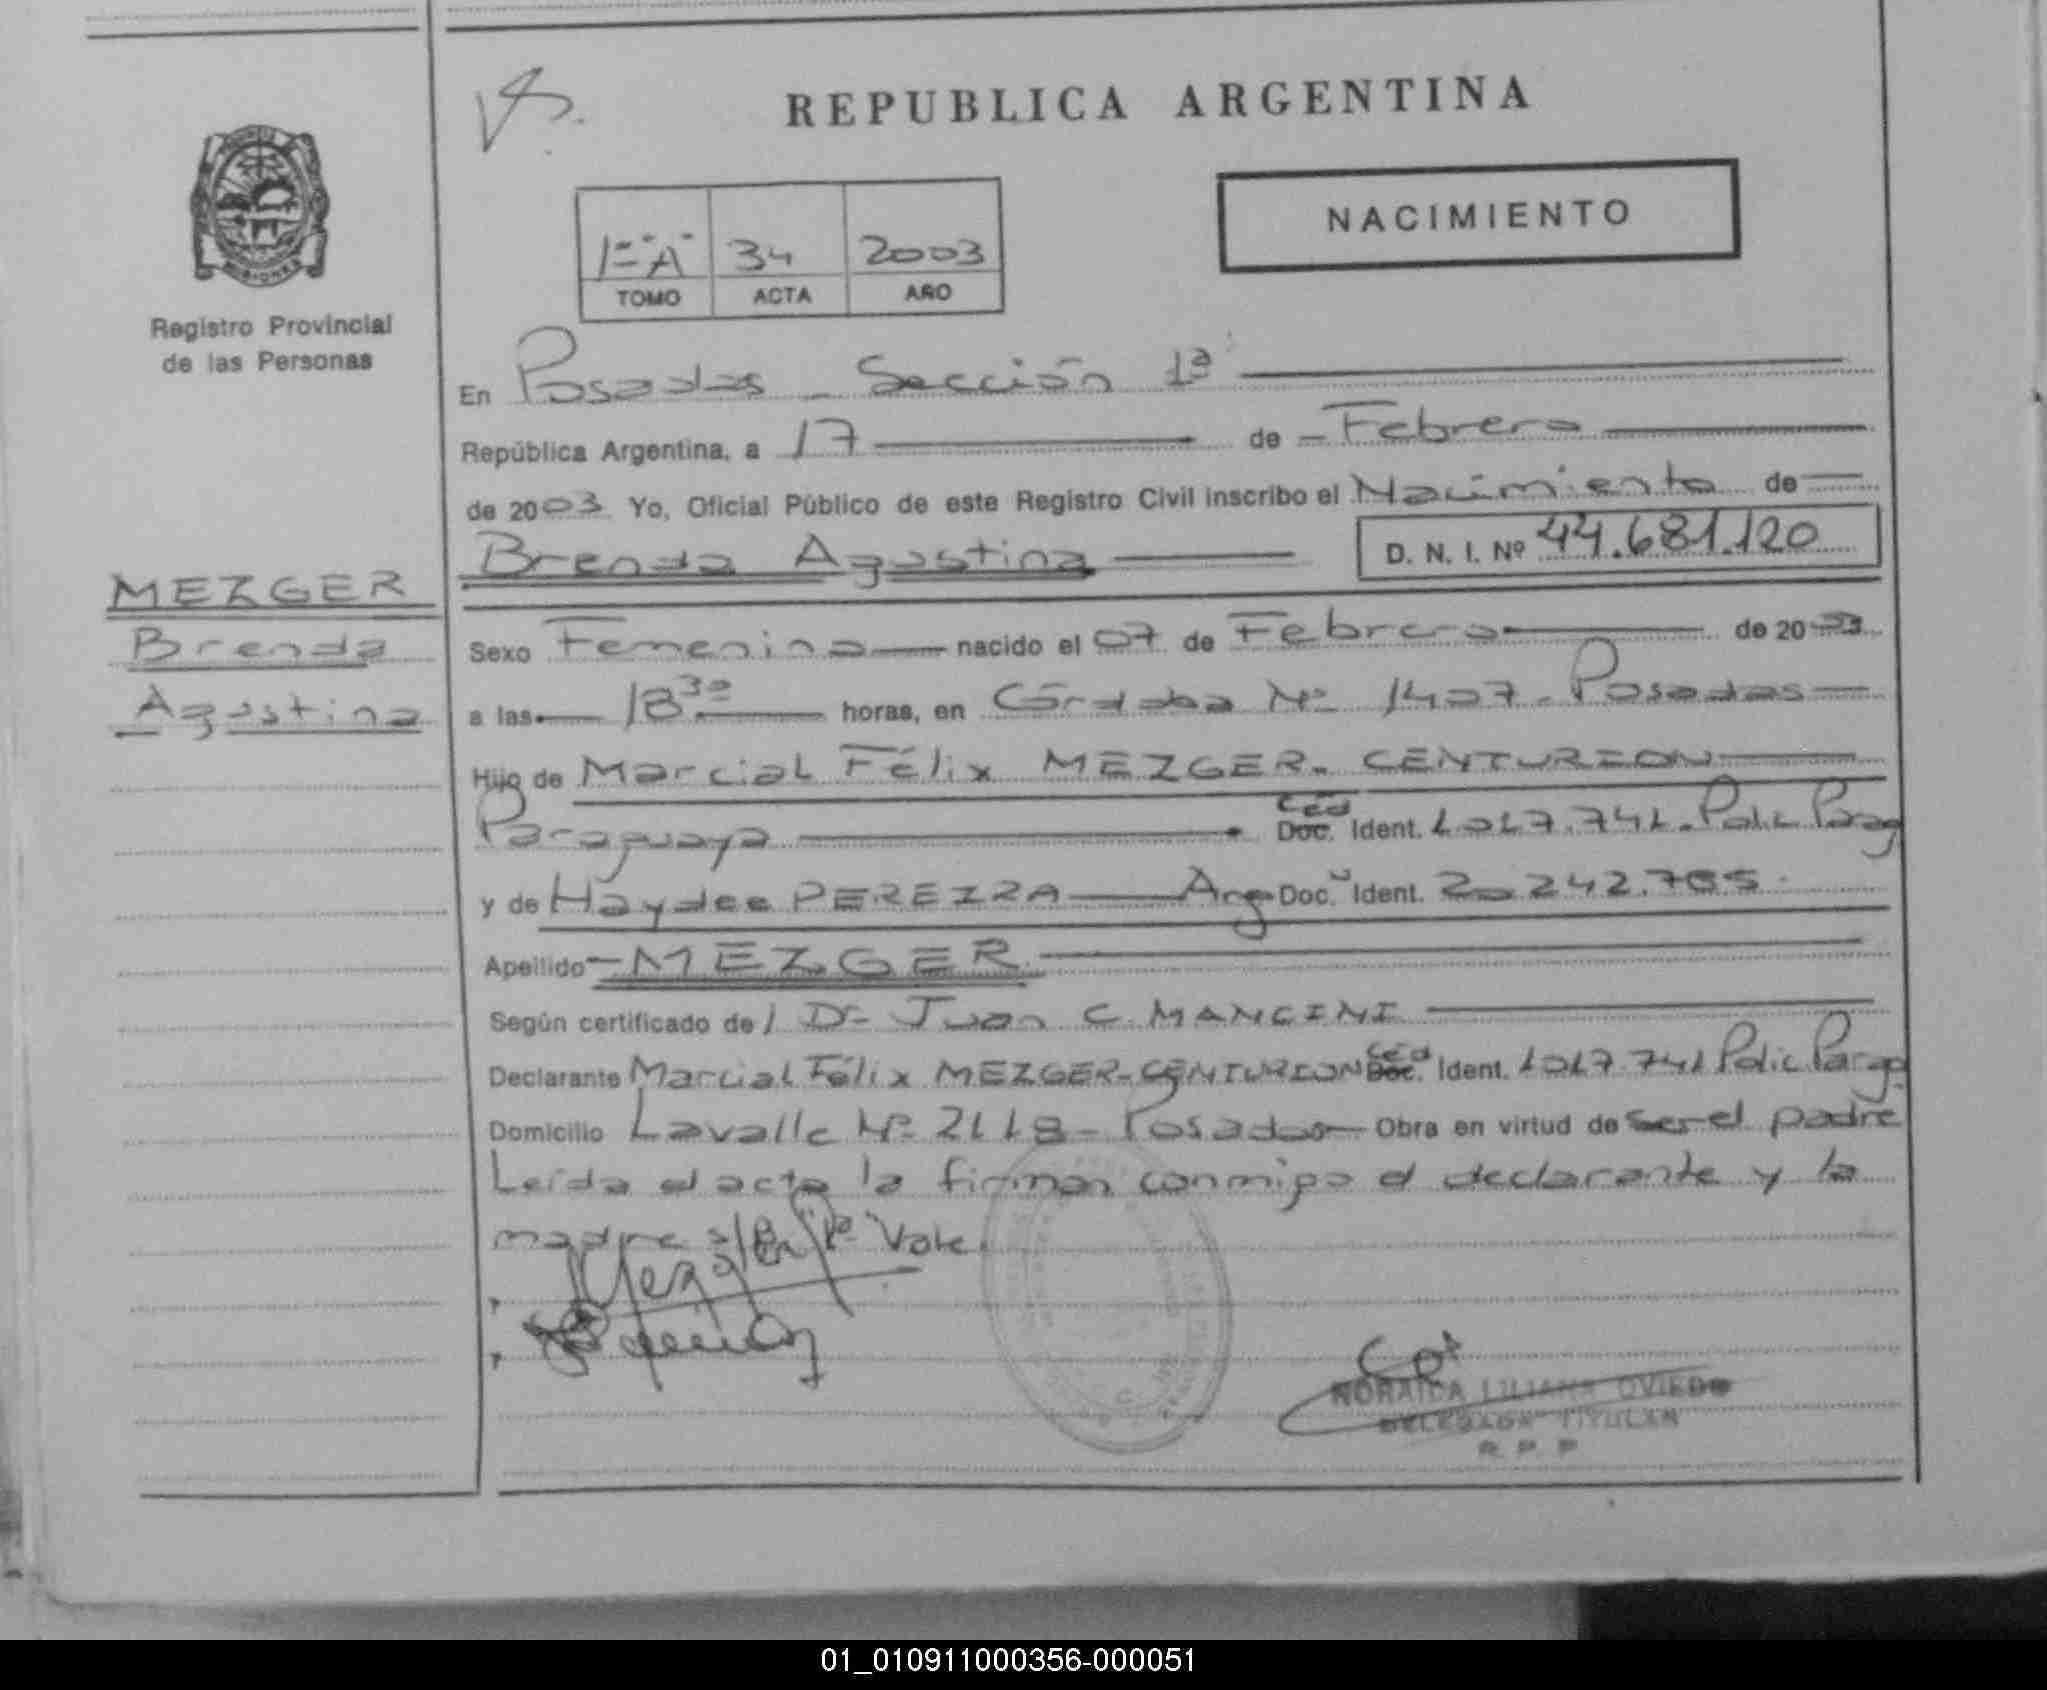 REPUBLICA ARGENTINA
NACIMIENTO
1º "A" 34 2003
TOMO ACTA AÑO
MISIONES
Registro Provincial
de las Personas
En Posadas - Sección 1ª
República Argentina, a 17 de Febrero
de 2003 Yo, Oficial Público de este Registro Civil inscribo el Nacimiento de
Brenda Agostina D. N. I. Nº 44.681.120
MEZGER
Brenda
Agostina
Sexo Femenino nacido el 07 de Febrero de 2003
a las 18 30 horas, en Córdoba Nº 1407 - Posadas
Hijo de Marcial Félix MEZGER - CENTURION
Paraguaya Céd Doc. Ident. 1017.741 - Polic Parag
y de Haydee PEREIRA Arg Doc. Ident. 20.242.765
Apellido MEZGER
Según certificado de / Dr Juan C. MANCINI
Declarante Marcial Félix MEZGER - CENTURION Céd Doc. Ident. 1017.741 Polic Parag
Domicilio Lavalle Nº 2118 - Posadas Obra en virtud de ser el padre
Leída el acta la firman conmigo el declarante y la
madre s/ Vale
NORAIDA LILIANA OVIEDO
DELEGADA TITULAR
R. P. P
01_010911000356-000051